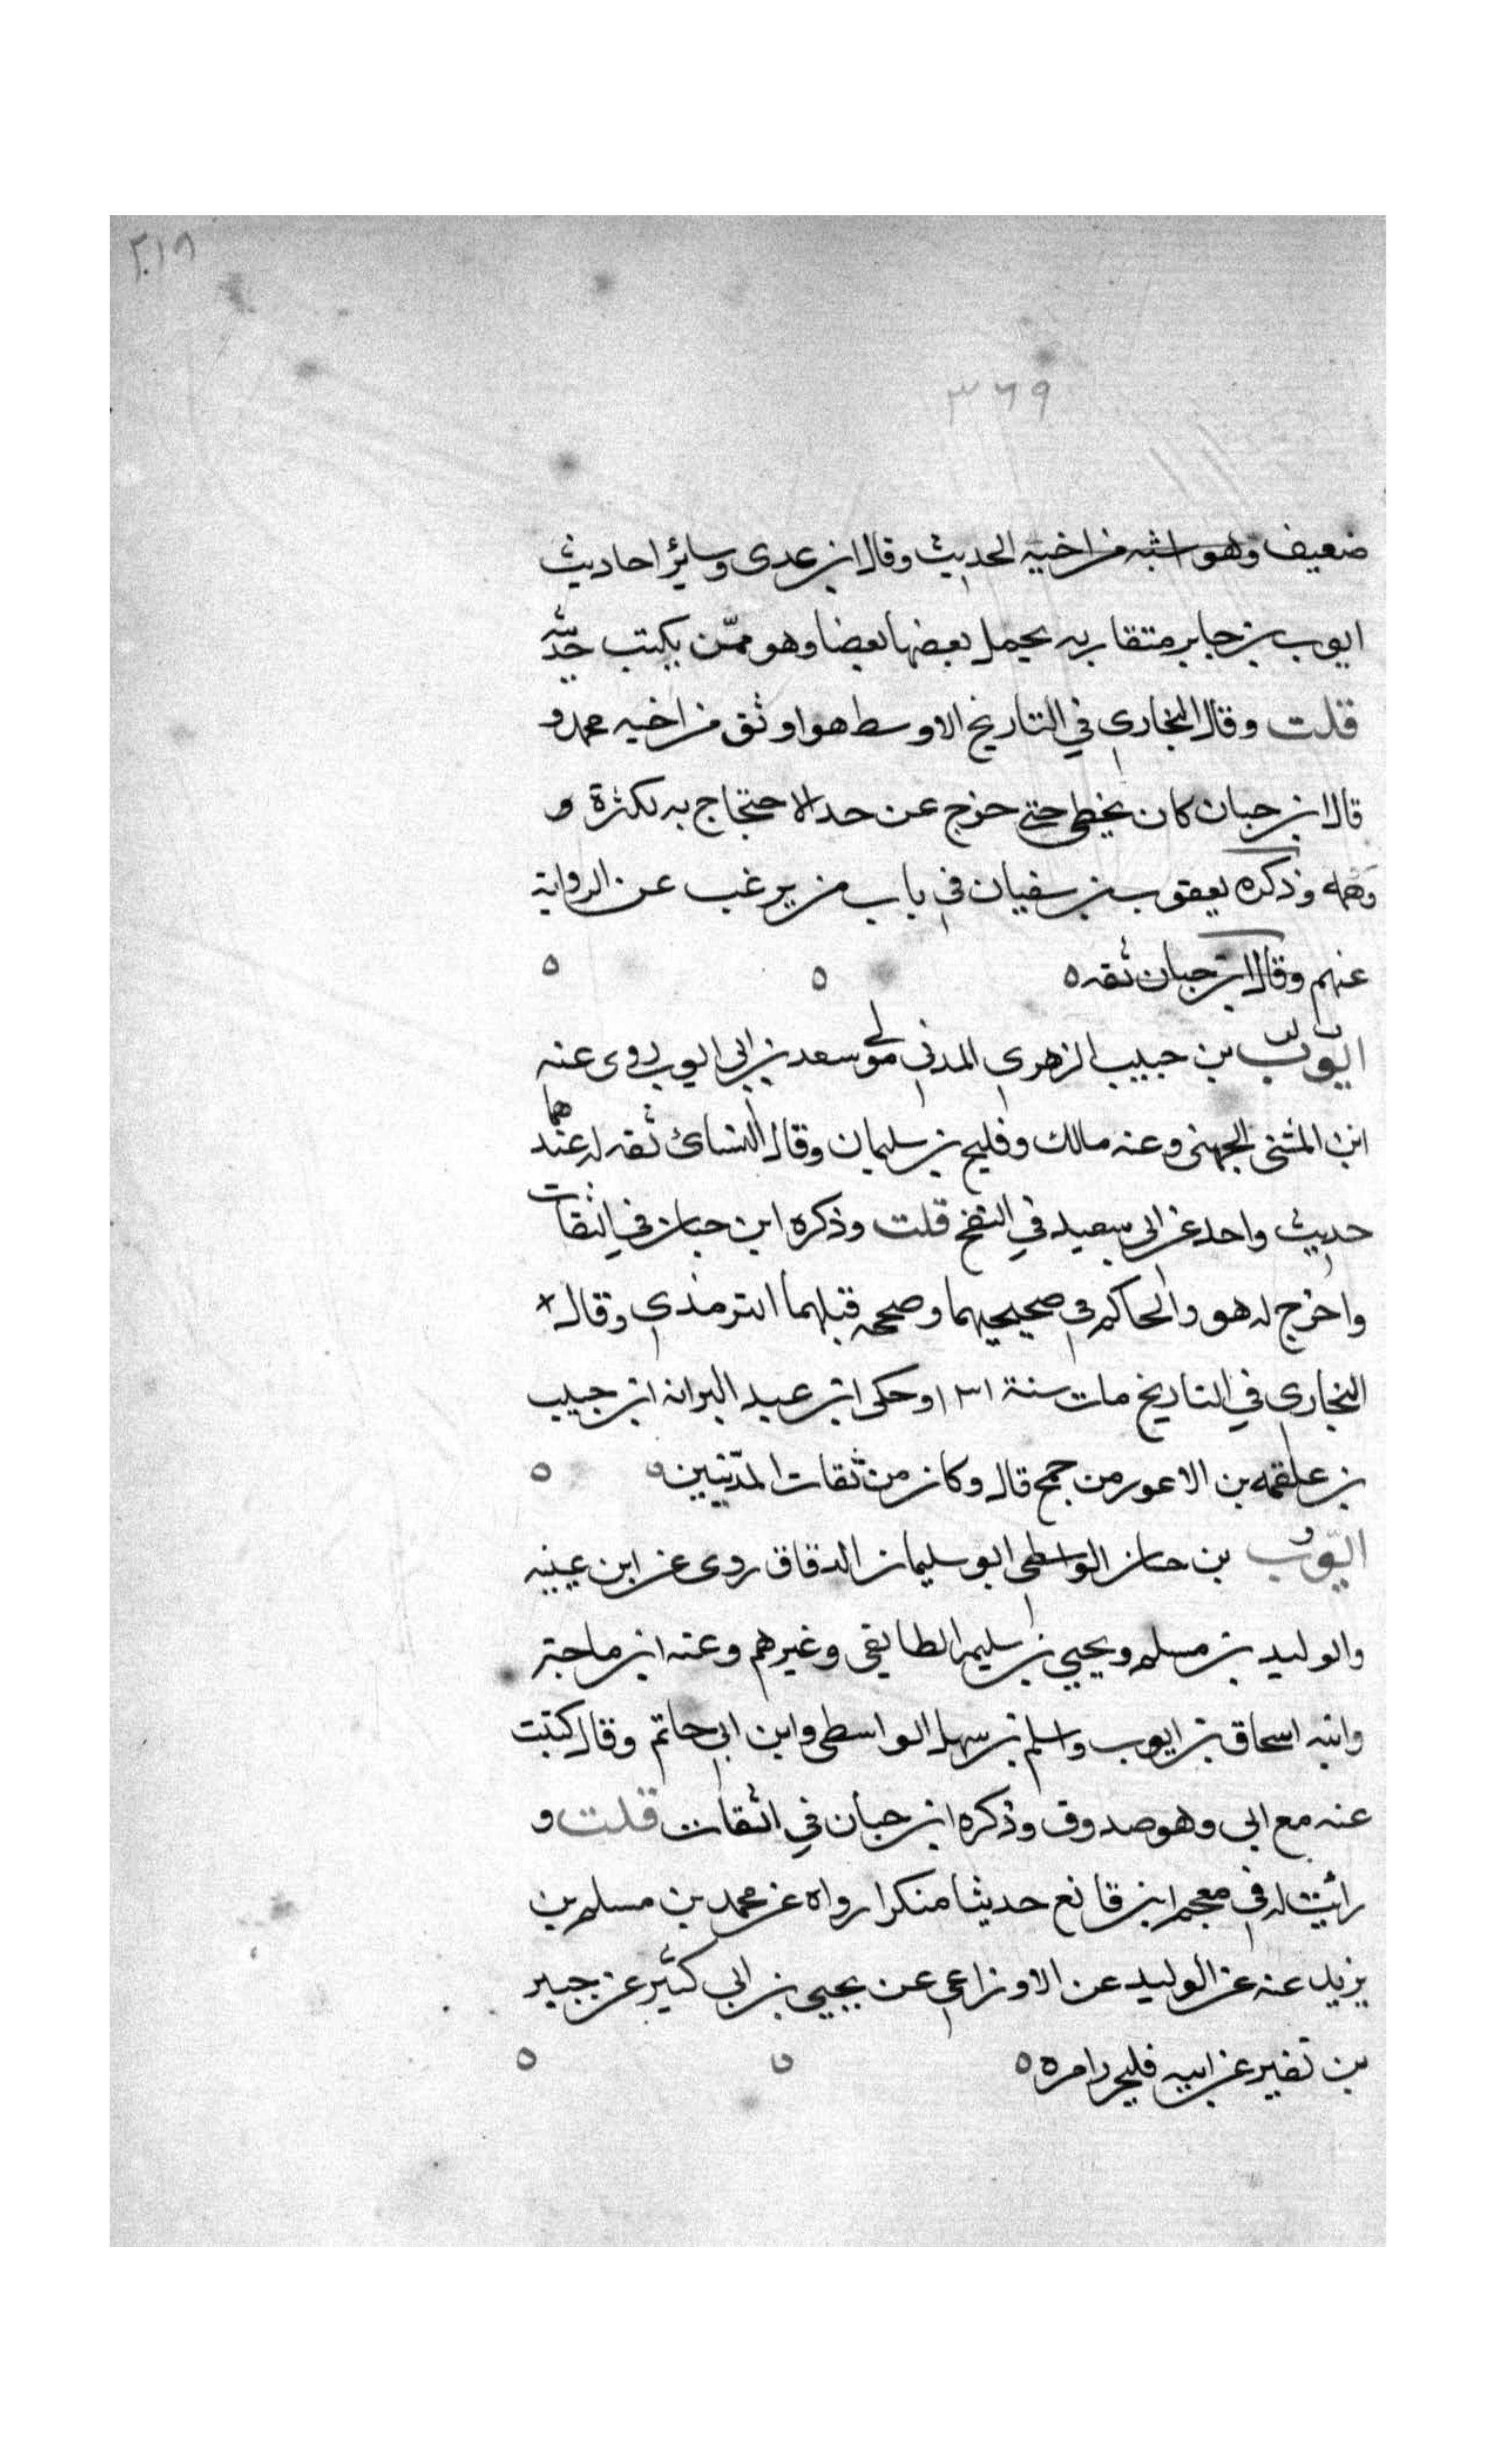 ٢٠١٨
٣٦٩
ضعيف وهو اشبه من اخيه الحديث وقال ابن عدى وساير احاديث
ايوب بن جابر متقاربه يحمل بعضها بعضا وهو ممّن يكتب حديثه
قلت وقال البخارى في التاريخ الاوسط هو اوثق من اخيه محمد و
قال ابن حبان كان يخطى حتى خرج عن حد الاحتجاج به لكثرة و
وهمه وذكره يعقوب بن سفيان في باب من يرغب عن الرواية
عنهم وقال ابن حبان ثقه ه ه ه
ايوب بن حبيب الزهرى المدنى مولى سعد بن ابى ايوب روى عنه
ابن المثنى الجهنى وعنه مالك وفليح بن سليمان وقال النسائ ثقه له عندهما
حديث واحد عن ابى سعيد في النفخ قلت وذكره ابن حبان في الثقات
واخرج له هو والحاكم في صحيحيهما وصححه قبلهما الترمذي وقال
البخارى في التاريخ مات سنة ١٣١ وحكى ابن عبد البر انه ابن حبيب
بن علقمه بن الاعور من جمح قال وكان من ثقات المدّنيين ه ه
ايّوب بن حسان الواسطى ابو سليمان الدقاق روى عن ابن عيينه
والوليد بن مسلم ويحيي بن سليم الطايفى وغيرهم وعنه ابن ماجة
وابنه اسحاق بن ايوب واسلم بن سهل الواسطى وابن ابى حاتم وقال كتبت
عنه مع ابى وهو صدوق وذكره ابن حبان في الثقات قلت و
رائيت له في معجم ابن قانع حديثا منكرا رواه عن محمد بن مسلم بن
يزيد عنه عن الوليد عن الاوزاعى عن يحيي بن ابى كثير عن جبير
بن نفير عن ابيه فليحرر امره ه ه ه